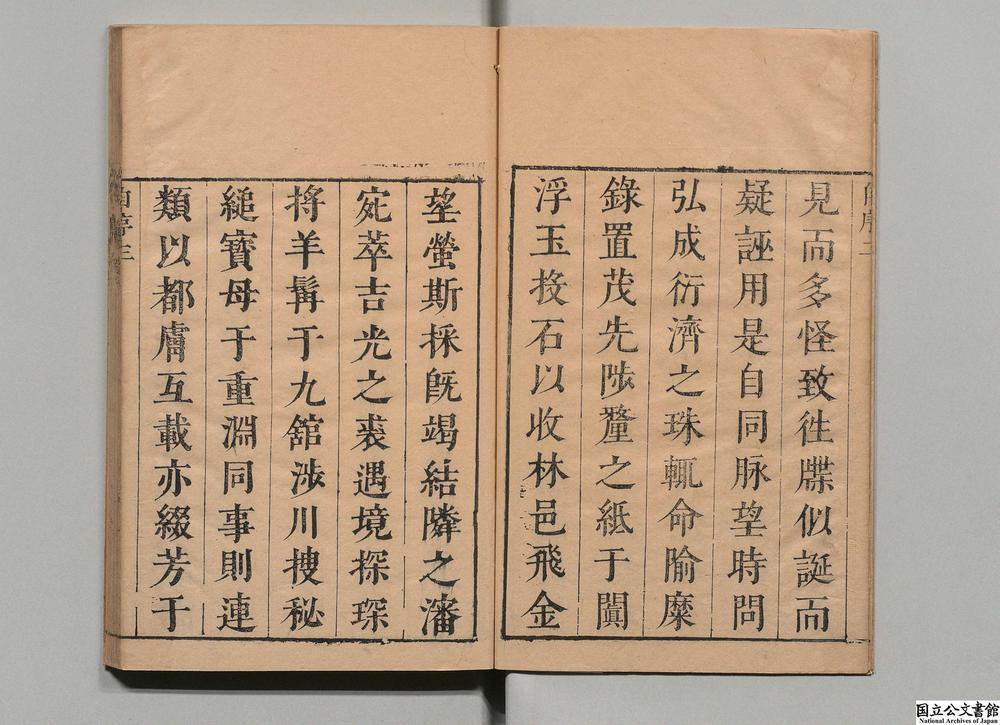 見而多怪致徃牒似誕而
疑誣用是自同脉望時問
弘成衍濟之珠輒命隃糜
錄置茂先陟釐之紙于闐
浮玉投石以收林邑飛金
堊螢斯採旣竭結隣之瀋
宛萃吉光之裘遇境探琛
捋羊髯于九舘涉川搜秘
縋寳母于重淵同事則連
類以都膚互載亦綴芳于
国立公文書館
National Archives of Japan